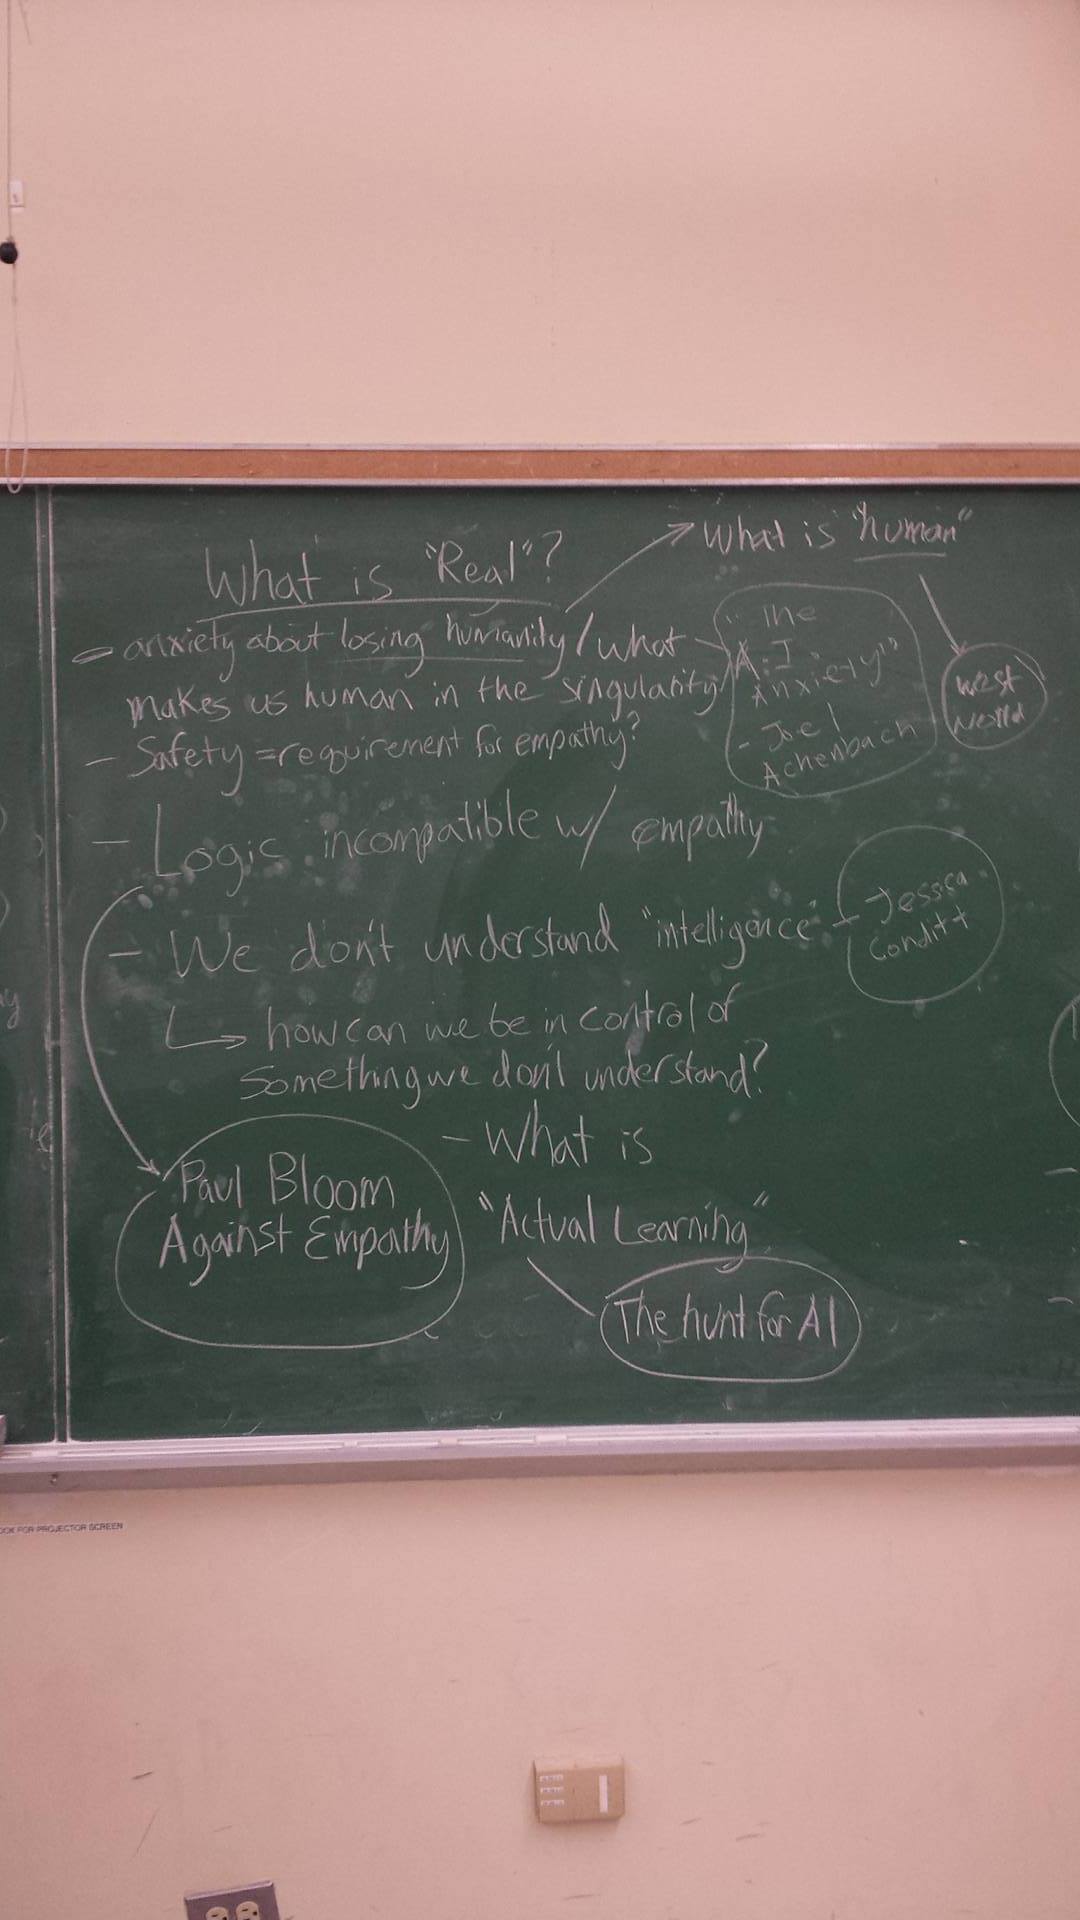 What is "Real"?
→ What is "human"
- anxiety about losing humanity / what
makes us human in the singularity
"The
A.I.
Anxiety"
- Joel
Achenbach
West
World
- Safety = requirement for empathy?
- Logic incompatible w/ empathy
- We don't understand "intelligence"
Jessica
Conditt
↳ how can we be in control of
something we don't understand?
Paul Bloom
Against Empathy
- What is
"Actual Learning"
The hunt for AI
OOK FOR PROJECTOR SCREEN